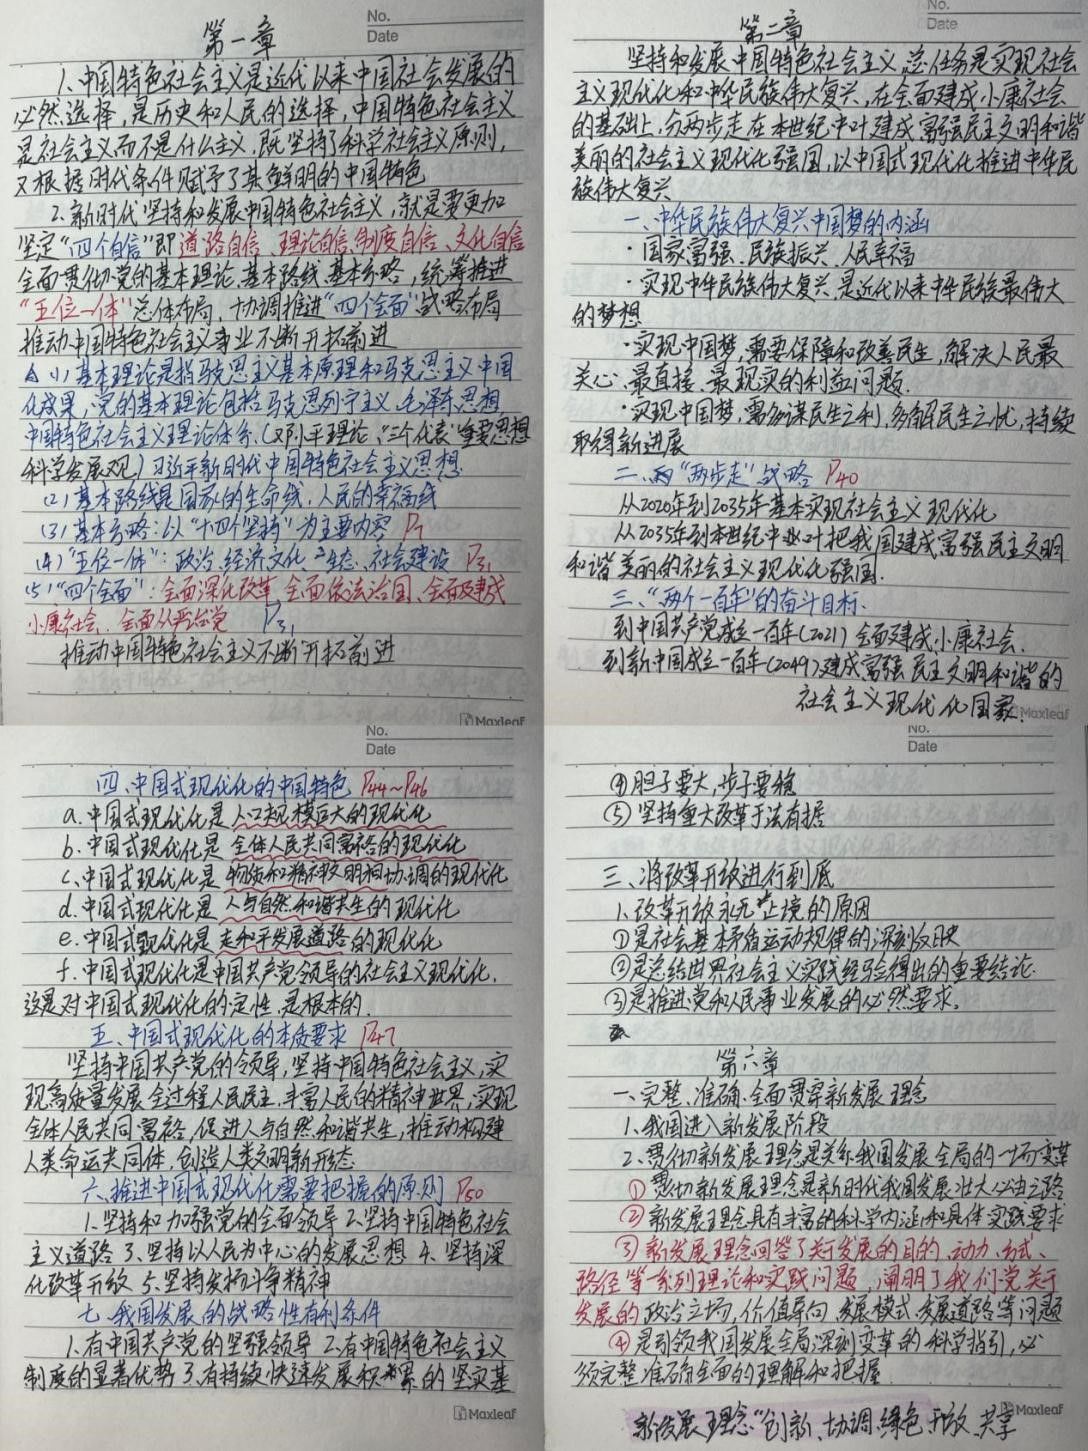 No.
Date
第一章
1、中国特色社会主义是近代以来中国社会发展的
必然选择，是历史和人民的选择，中国特色社会主义
是社会主义而不是什么主义，既坚持了科学社会主义原则，
又根据时代条件赋予了其鲜明的中国特色
2、新时代坚持和发展中国特色社会主义，就是要更加
坚定“四个自信”即道路自信、理论自信、制度自信、文化自信
全面贯彻党的基本理论、基本路线、基本方略，统筹推进
“五位一体”总体布局，协调推进“四个全面”战略布局
推动中国特色社会主义事业不断开拓前进
(1) 基本理论是指马克思主义基本原理和马克思主义中国
化成果，党的基本理论包括马克思列宁主义、毛泽东思想、
中国特色社会主义理论体系、(邓小平理论、“三个代表”重要思想
科学发展观) 习近平新时代中国特色社会主义思想
(2) 基本路线是国家的生命线、人民的幸福线
(3) 基本方略：以“十四个坚持”为主要内容
(4) “五位一体”：政治、经济、文化、生态、社会建设 P31
(5) “四个全面”：全面深化改革、全面依法治国、全面建成
小康社会、全面从严治党 P31
推动中国特色社会主义不断开拓前进
Maxleaf
No.
Date
第二章
坚持和发展中国特色社会主义，总任务是实现社会
主义现代化和中华民族伟大复兴，在全面建成小康社会
的基础上，分两步走在本世纪中叶建成富强民主文明和谐
美丽的社会主义现代化强国，以中国式现代化推进中华民
族伟大复兴
一、中华民族伟大复兴中国梦的内涵
·国家富强、民族振兴、人民幸福
·实现中华民族伟大复兴，是近代以来中华民族最伟大
的梦想
·实现中国梦，需要保障和改善民生，解决人民最
关心、最直接、最现实的利益问题.
·实现中国梦，需多谋民生之利，多解民生之忧，持续
取得新进展
二、“两步走”战略 P40
从2020年到2035年基本实现社会主义现代化
从2035年到本世纪中叶把我国建成富强民主文明
和谐美丽的社会主义现代化强国.
三、“两个一百年”的奋斗目标.
到中国共产党成立一百年(2021) 全面建成小康社会.
到新中国成立一百年(2049)建成富强民主文明和谐的
社会主义现代化国家.
Maxleaf
No.
Date
四、中国式现代化的中国特色 P44~P46
a.中国式现代化是人口规模巨大的现代化
b.中国式现代化是全体人民共同富裕的现代化
c.中国式现代化是物质和精神文明相协调的现代化
d.中国式现代化是人与自然和谐共生的现代化
e.中国式现代化是走和平发展道路的现代化
f.中国式现代化是中国共产党领导的社会主义现代化，
这是对中国式现代化的定性，是根本的.
五、中国式现代化的本质要求 P47
坚持中国共产党的领导，坚持中国特色社会主义，实
现高质量发展全过程人民民主，丰富人民的精神世界，实现
全体人民共同富裕，促进人与自然和谐共生，推动构建
人类命运共同体，创造人类文明新形态
六、推进中国式现代化需要把握的原则 P50
1、坚持和加强党的全面领导 2、坚持中国特色社会
主义道路 3、坚持以人民为中心的发展思想 4、坚持深
化改革开放 5、坚持发扬斗争精神
七、我国发展的战略性有利条件
1、有中国共产党的坚强领导 2、有中国特色社会主义
制度的显著优势 3、有持续快速发展积累的坚实基
Maxleaf
No.
Date
④胆子要大，步子要稳
⑤坚持重大改革于法有据
三、将改革开放进行到底
1、改革开放永无止境的原因
①是社会基本矛盾运动规律的深刻反映
②是总结世界社会主义实践经验得出的重要结论
③是推进党和人民事业发展的必然要求。
第六章
一、完整、准确、全面贯穿新发展理念
1、我国进入新发展阶段
2、贯彻新发展理念是关系我国发展全局的一场变革
①贯彻新发展理念是新时代我国发展壮大必由之路
②新发展理念具有丰富的科学内涵和具体实践要求
③新发展理念回答了关于发展的目的、动力、方式、
路径等一系列理论和实践问题，阐明了我们党关于
发展的政治立场、价值导向、发展模式、发展道路等问题
④是引领我国发展全局深刻变革的科学指引，必
须完整准确全面的理解和把握
Maxleaf
新发展理念“创新、协调、绿色、开放、共享